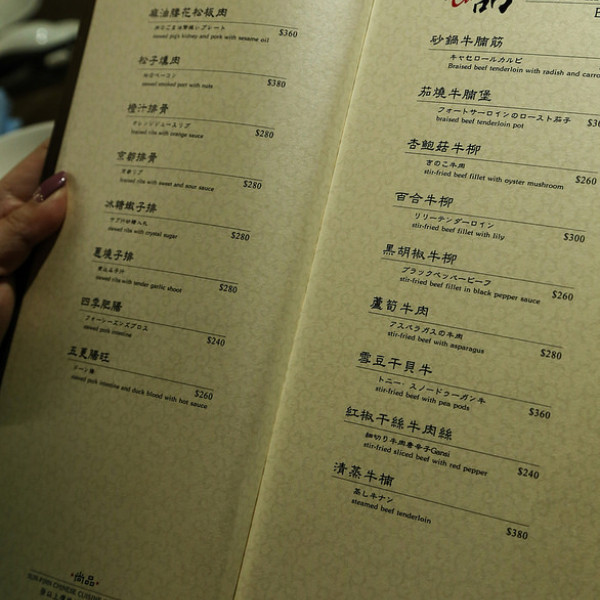 麻油腰花松板肉
sauted pig's kidney and pork with sesame oil
$360
松子燻肉
sauted smoked port with nuts
$380
橙汁排骨
オレンジジュースリブ
boned ribs with orange sauce
$280
京都排骨
京都リブ
boned ribs with sweet and sour sauce
$280
冰糖嫩子排
stewed ribs with crystal sugar
$280
stewed ribs with tender garlic shoot
$280
四季肥腸
フォーシーズンズプロス
stewed pork intestine
$240
五更腸旺
stewed pork intestine and duck blood with hot sauce
$260
尚品
砂鍋牛腩筋
キャセロールカルビ
Braised beef tenderloin with radish and carro
茄燒牛腩堡
フォートサーロインのロースト茄子
braised beef tenderloin pot
杏鮑菇牛柳
きのこ牛肉
stir-fried beef fillet with oyster mushroom
$260
百合牛柳
リリーテンダーロイン
stir-fried beef fillet with lily
$300
黑胡椒牛柳
ブラックペッパービーフ
stir-fried beef fillet in black pepper sauce
$260
蘆筍牛肉
アスパラガスの牛肉
stir-fried beef with asparagus
$280
雪豆干貝牛
トニー・スノードラーガン牛
stir-fried beef with pea pods
$360
紅椒干絲牛肉絲
細切り牛肉唐辛子Gansi
stir-fried sliced beef with red pepper
$240
清蒸牛腩
蒸し牛ナン
steamed beef tenderloin
$380